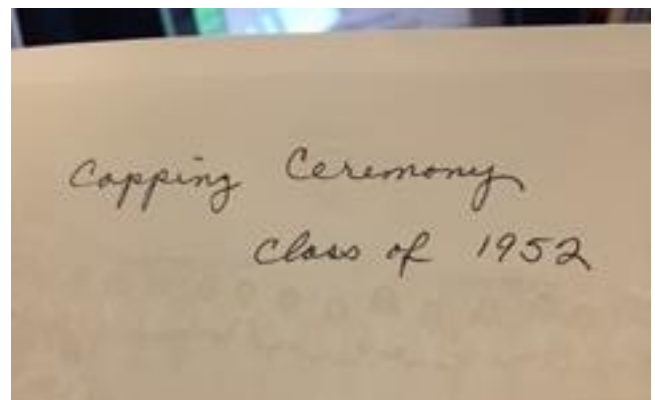 Capping Ceremony
Class of 1952